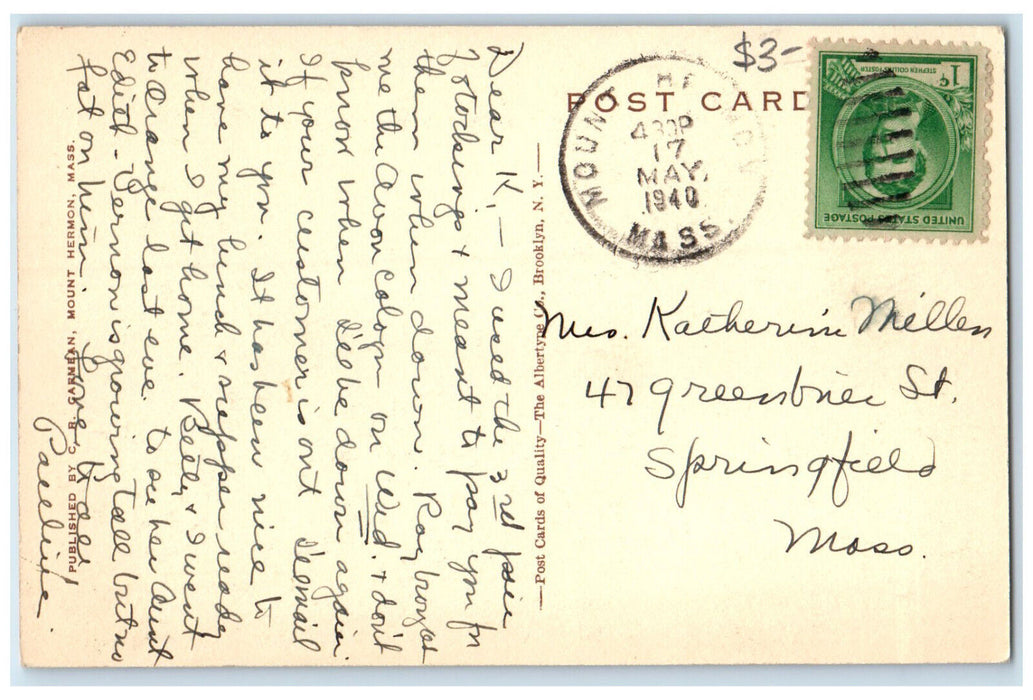 $3-
POST CARD
MOUNT HERMON
430P
17
MAY
1940
MASS.
1¢
STEPHEN COLLINS FOSTER
UNITED STATES POSTAGE
Dear K, — I used the 3rd pair
of stockings & meant to pay you for
them when down. Ray brought
me the Avon cologn on Wed. & don't
know when I'll be down again.
If your customer is out I'll mail
it to you. It has been nice to
have my lunch & supper ready
when I got home. Betty & I went
to Orange last eve. to see her Aunt
Edith - Vernon is growing tall but no
fat on him. Love to all
Pauline.
PUBLISHED BY C. R. CARMEAN, MOUNT HERMON, MASS.
—Post Cards of Quality—The Albertype Co., Brooklyn, N. Y.—
Mrs. Katherine Millen
47 Greenbrier St.
Springfield
Mass.